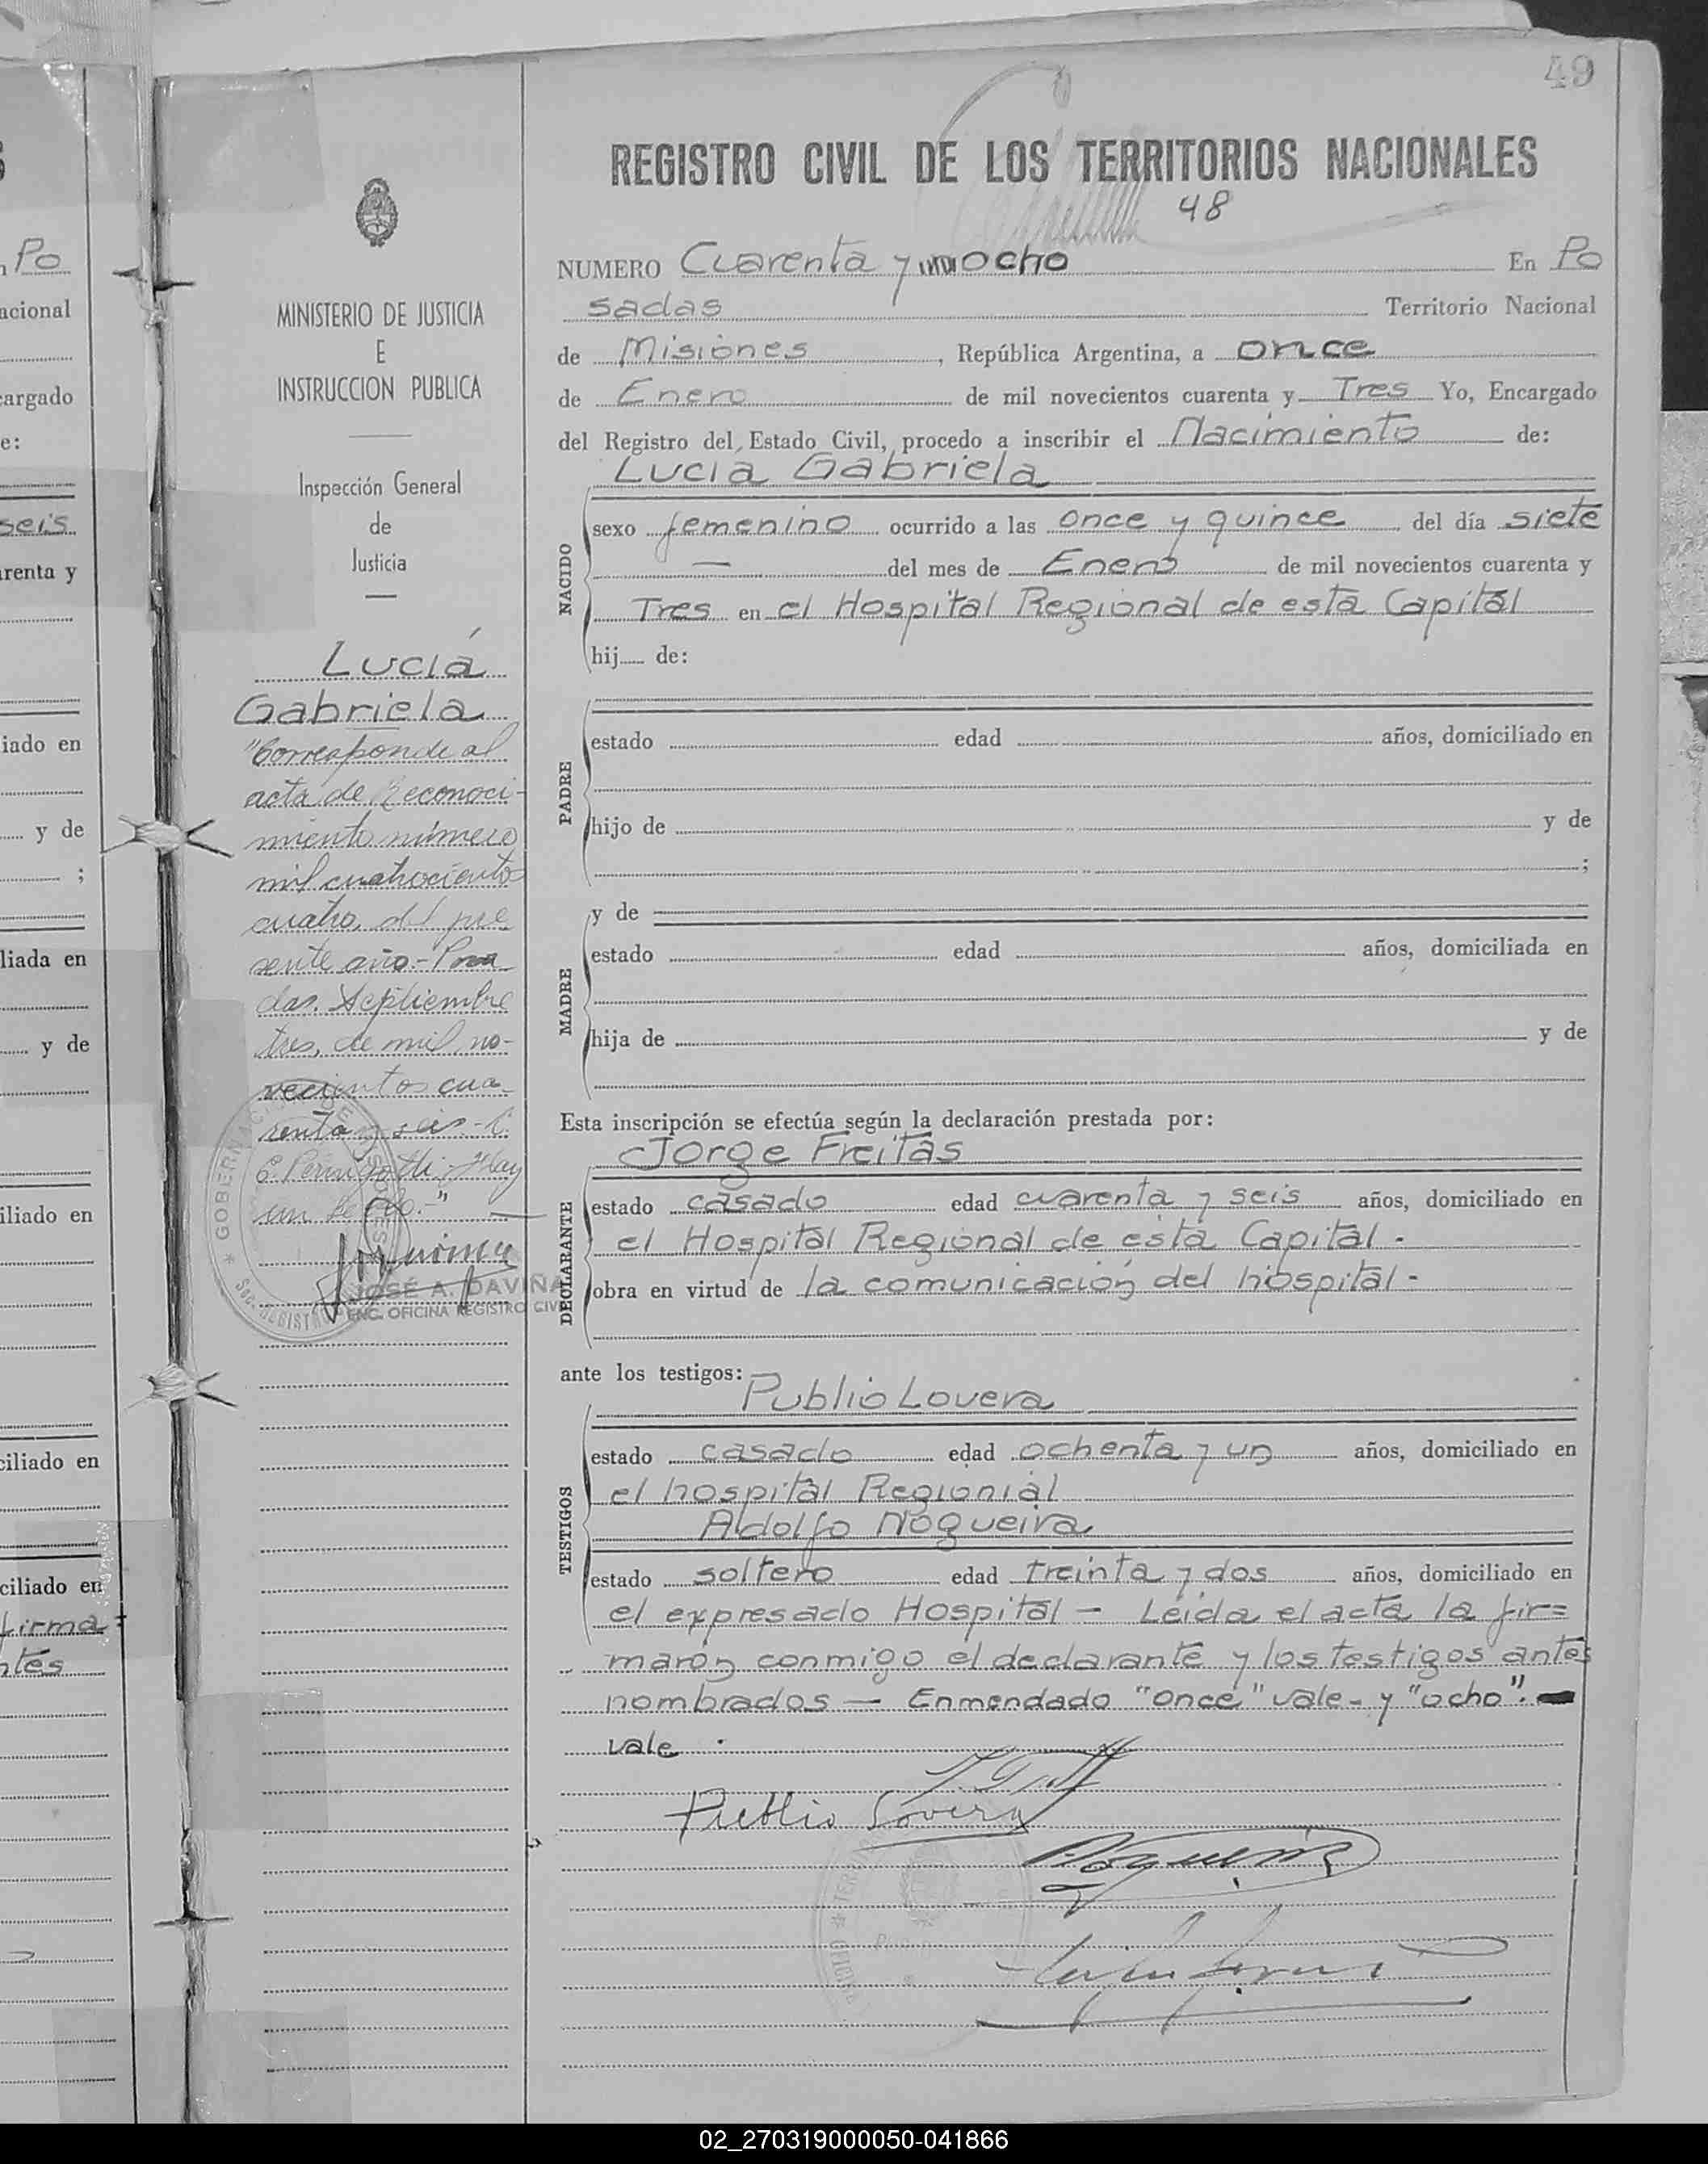 49
REGISTRO CIVIL DE LOS TERRITORIOS NACIONALES
48
NUMERO Cuarenta y ocho En Po
sadas Territorio Nacional
de Misiones, República Argentina, a once
de Enero de mil novecientos cuarenta y Tres Yo, Encargado
del Registro del Estado Civil, procedo a inscribir el Nacimiento de:
Lucia Gabriela
NACIDO
sexo femenino ocurrido a las once y quince del día siete
— del mes de Enero de mil novecientos cuarenta y
Tres en el Hospital Regional de esta Capital
hij de:
PADRE
estado edad años, domiciliado en
hijo de y de
;
y de
MADRE
estado edad años, domiciliada en
hija de y de
Esta inscripción se efectúa según la declaración prestada por:
Jorge Freitas
DECLARANTE
estado casado edad cuarenta y seis años, domiciliado en
el Hospital Regional de esta Capital -
obra en virtud de la comunicación del hospital -
ante los testigos:
Publio Lovera
TESTIGOS
estado casado edad ochenta y un años, domiciliado en
el hospital Regionial
Adolfo Nogueira
estado soltero edad treinta y dos años, domiciliado en
el expresado Hospital - Leida el acta la fir=
maron conmigo el declarante y los testigos antes
nombrados — Enmendado "once" vale - y "ocho".
vale .
Publio Lovera
Nogueira
MINISTERIO DE JUSTICIA
E
INSTRUCCION PUBLICA
Inspección General
de
Justicia
Lucia
Gabriela
"Corresponde al
acta de Reconoci-
miento número
mil cuatrocientos
cuatro, del pre
sente año.- Posa
das, Septiembre
tres, de mil no-
vecientos cua-
renta y seis -
Hay
un sello."
GOBERNACION
JOSÉ A. DAVIÑA
ENC. OFICINA REGISTRO CIVIL
Po
acional
cargado
e:
seis
renta y
iado en
y de
;
liada en
y de
iliado en
ciliado en
ciliado en
firma=
ntes
02_270319000050-041866